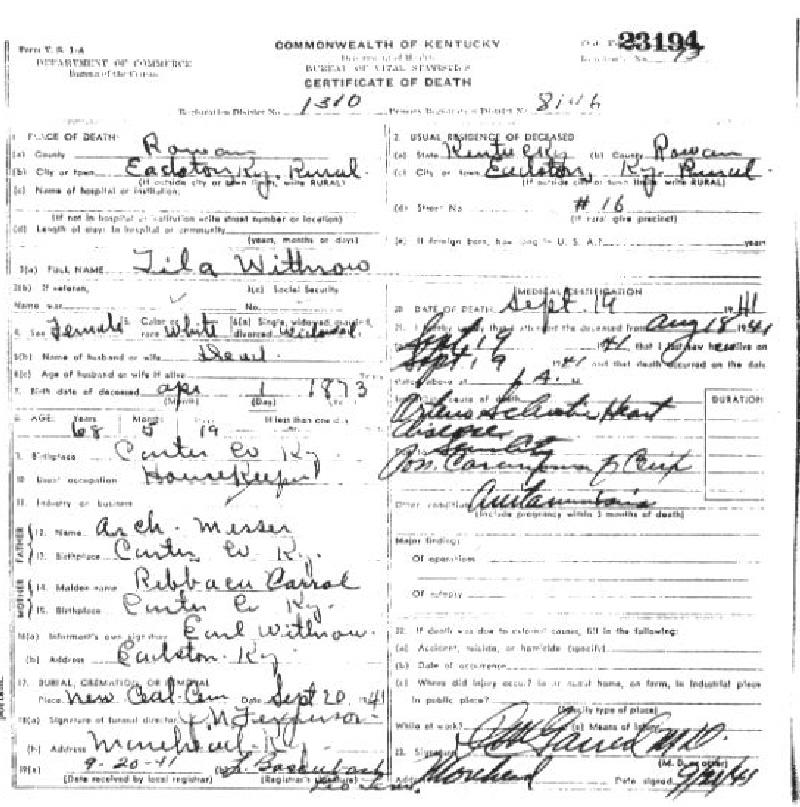 Form V. S. 1-A
DEPARTMENT OF COMMERCE
Bureau of the Census
COMMONWEALTH OF KENTUCKY
BUREAU OF VITAL STATISTICS
CERTIFICATE OF DEATH
23194
Registration District No. 1310
Primary Registration District No.
1. PLACE OF DEATH:
(a) County Rowan
(b) City or town Eadston, Ky. Rural
(If outside city or town limits, write RURAL)
(c) Name of hospital or institution:
(If not in hospital or institution write street number or location)
(d) Length of days in hospital or community
(years, months or days)
2. USUAL RESIDENCE OF DECEASED
(a) State Kentucky (b) County Rowan
(c) City or town Eadston, Ky. Rural
(If outside city or town limits write RURAL)
(d) Street No. # 16
(If rural give precinct)
(e) If foreign born, how long in U. S. A.? years
3(a) FULL NAME Lila Withrow
3(b) If veteran, 3(c) Social Security
Name war No.
4. Sex Female 5. Color or race White 6(a) Single, widowed, married, divorced
6(b) Name of husband or wife
6(c) Age of husband or wife if alive
7. Birth date of deceased Apr 1 1873
(Month) (Day)
8. AGE: Years Months If less than one day
68 5 19
9. Birthplace Carter Co Ky.
10. Usual occupation Housekeeper
11. Industry or business
FATHER
12. Name Arch. Messer
13. Birthplace Carter Co Ky.
MOTHER
14. Maiden name Ribbaca Carrol
15. Birthplace Carter Co Ky.
16(a) Informant's own signature Earl Withrow.
(b) Address Eadston. Ky.
17. BURIAL, CREMATION, OR REMOVAL
Place Cem Date Sept 20 1941
18(a) Signature of funeral director N Ferguson
(b) Address Morehead, Ky.
19(a) 9-20-41
(Date received by local registrar) (Registrar's signature)
MEDICAL CERTIFICATION
20. DATE OF DEATH Sept. 19 1941
21. I hereby certify that I attended the deceased from Aug 18 1941
Sept 19 1941 that I last saw alive on
Sept 19 1941 and that death occurred on the date
stated above at A. M.
DURATION
Heart
disease
Senility
Other conditions
(Include pregnancy within 3 months of death)
Major finding:
Of operations
Of autopsy
22. If death was due to external causes, fill in the following:
(a) Accident, suicide, or homicide (specify)
(b) Date of occurrence
(c) Where did injury occur? In or about home, on farm, in industrial place
In public place?
(Specify type of place)
While at work? (e) Means of injury
23. Signature Garred M.D.
(M. D. or other)
Address Morehead Date signed